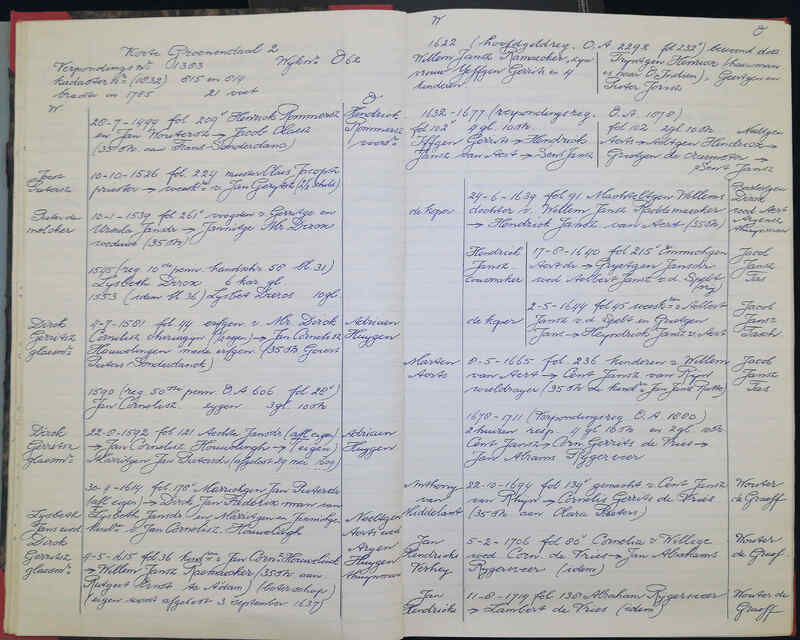 Korte Groenendaal 2
Verpondings No 1303 Wijk No O 62
kadaster No (1832) 815 en 814
breedte in 1785 21 voet
W
O
28-7-1499 fol 209 Henrick Rommersz
en Jan Woutersz → Jacob Claesz
(35 st. aan Frans Sonderdanc)
Henderick
Rommersz
voorn.
Joost
Pietersz
10-10-1526 fol 224
priester →
Pieter de
molcker
10-1-1539 fol 261 voogden v Gerritge en
Ursula Jansdr → Jannitge Mr Dircx
weduwe (35 st)
1545 (reg 10de penn. handschr. 58 bl. 31)
Lysbeth Dircx 6 kar. gl.
1553 (idem bl. 36) Lysbet Dircx 10 gl.
Dirck
Gerritsz
glasm.
4-7-1581 fol 44 erfgen. v. Mr. Dirck
Cornelisz chirurgijn (eigen) → Jan Cornelisz
Houwelingen mede erfgen. (35 st Goossen
Pieters Sonderdanck)
Adriaen
Huygen
1590 (reg 50ste penn. O.A 606 fol 28)
Jan Cornelisz. eygen 3 gl. 10 st.
Dirck
Gerritsz
glasm.
22-8-1592 fol 121 Aechte Jansdr (afl. eigen)
→ Jan Cornelisz Houwelingh → (eigen)
Marrigen Jan Pietersdr (afgelost 29 nov. 1609)
Adriaen
Huygen
30-4-1614 fol 178 Marrichgen Jan Pietersdr
(afl. eigen) → Dirck Jan Fredericx man van
Lysbeth Jansdr en Marrichgen en Jannitge
kindn v Jan Cornelisz. Houwelingh
Lysbeth
Jans wed
Dirck
Gerritsz
glasm.
Neeltgen
Aerts wed
Aryen
Huygen
thuynman
9-5-1615 fol 36 kindn v. Jan Corn. Houwelingh
→ Willem Jansz Raemaecker (35 st. aan
Rutgert Ernst te A'dam) (boterschip)
(eigen wordt afgelost 3 September 1637)
W
O
1622 (hoofdgeldreg. O.A 2292 fol 232) bewoond door
Willem Jansz Ramacker, zijn
vrouw Yeffgen Gerrits en 4
kinderen
Tryntgen Henricx
(haar man is naar O. Indien), Geertgen en
Pieter Jansz
1632-1677 (verpondingsreg. O.A. 1078)
fol 102 4 gl. 10 st.
Yffgen Gerrits → Hendrick
Jansz van Aert → Cent Jansz
fol 102 2 gl. 10 st. Neeltgen
Aerts → Aeltgen Hendricx →
Grietgen de →
Cent Jansz
de koper
24-6-1639 fol 91 Machteltgen Willems
dochter v. Willem Jansz Raedemaecker
→ Hendrick Jansz van Aert (35 st)
Dirck
wed Aert
Aryensz
thuynman
Hendrick
Jansz
17-8-1640 fol 215 Emmichgen
Aertsdr → Gryetgen Jansdr
wed Aelbert Jansz v.d. Spelt
Jacob
Jansz
Tas
de koper
2-5-1644 fol 45 weeskn v. Aelbert
Jansz v.d. Spelt en Grietgen
Jans → Heyndrick Jansz v. Aert
Jacob
Jansz
Tasch
Marten
Aerts
8-5-1665 fol. 236 kinderen v. Willem
van Aert → Cent Jansz van Ryn
wieldrayer (35 st de kindn v Jan Jans)
Jacob
Jansz
Tas
1678-1711 (Verpondingsreg O.A. 1080)
2 huizen resp. 4 gl 16 st en 2 gl. 10 st
Cent Jansz → Corn Gerrits de Vries →
Jan Abrams Rygervoer
Anthony
van
Middelant
22-12-1694 fol 134 gemacht. v. Cent Jansz
van Rhyn → Cornelis Gerrits de Vries
(35 st aan Clara Pieters)
Wouter
de Graeff
Jan
Hendricks
Verhey
5-2-1706 fol 80 Cornelia v Willige
wed Corn. de Vries → Jan Abrahams
Rygervoer (idem)
Wouter
de Graef.
Jan
Hendricks
11-8-1719 fol 138 Abraham Rygervoer
→ Lambert de Vries (idem)
Wouter de
Graeff